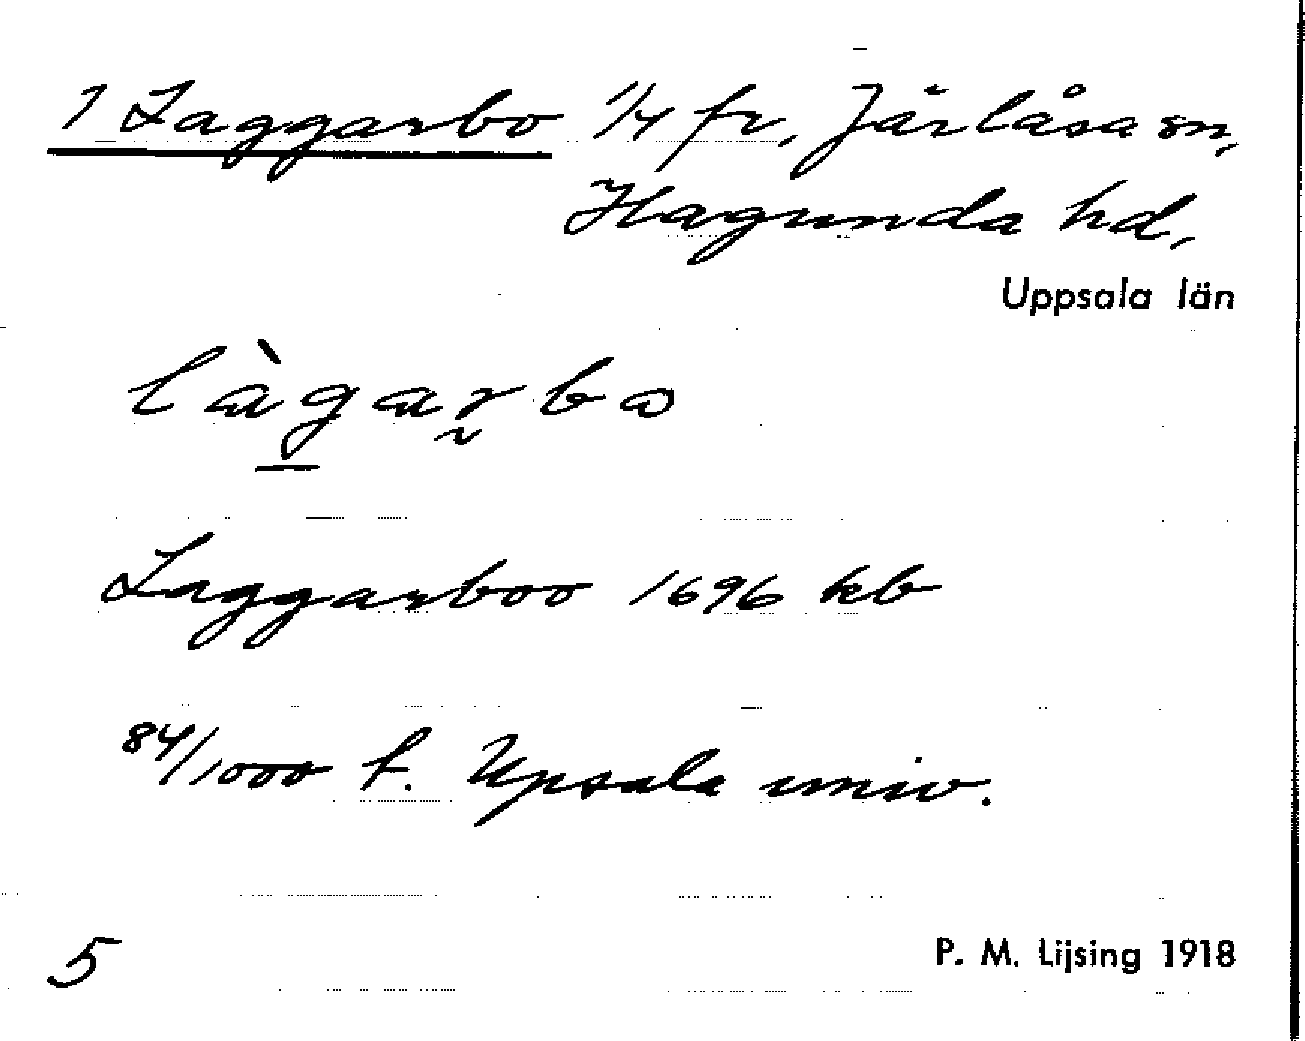 1 Laggarbo 1/4 fr, Järlåsa sn,
Hagunda hd,
Uppsala län
làgarbo
Laggarboo 1696 kb
84/1000 f. Upsala univ.
5
P. M. Lijsing 1918